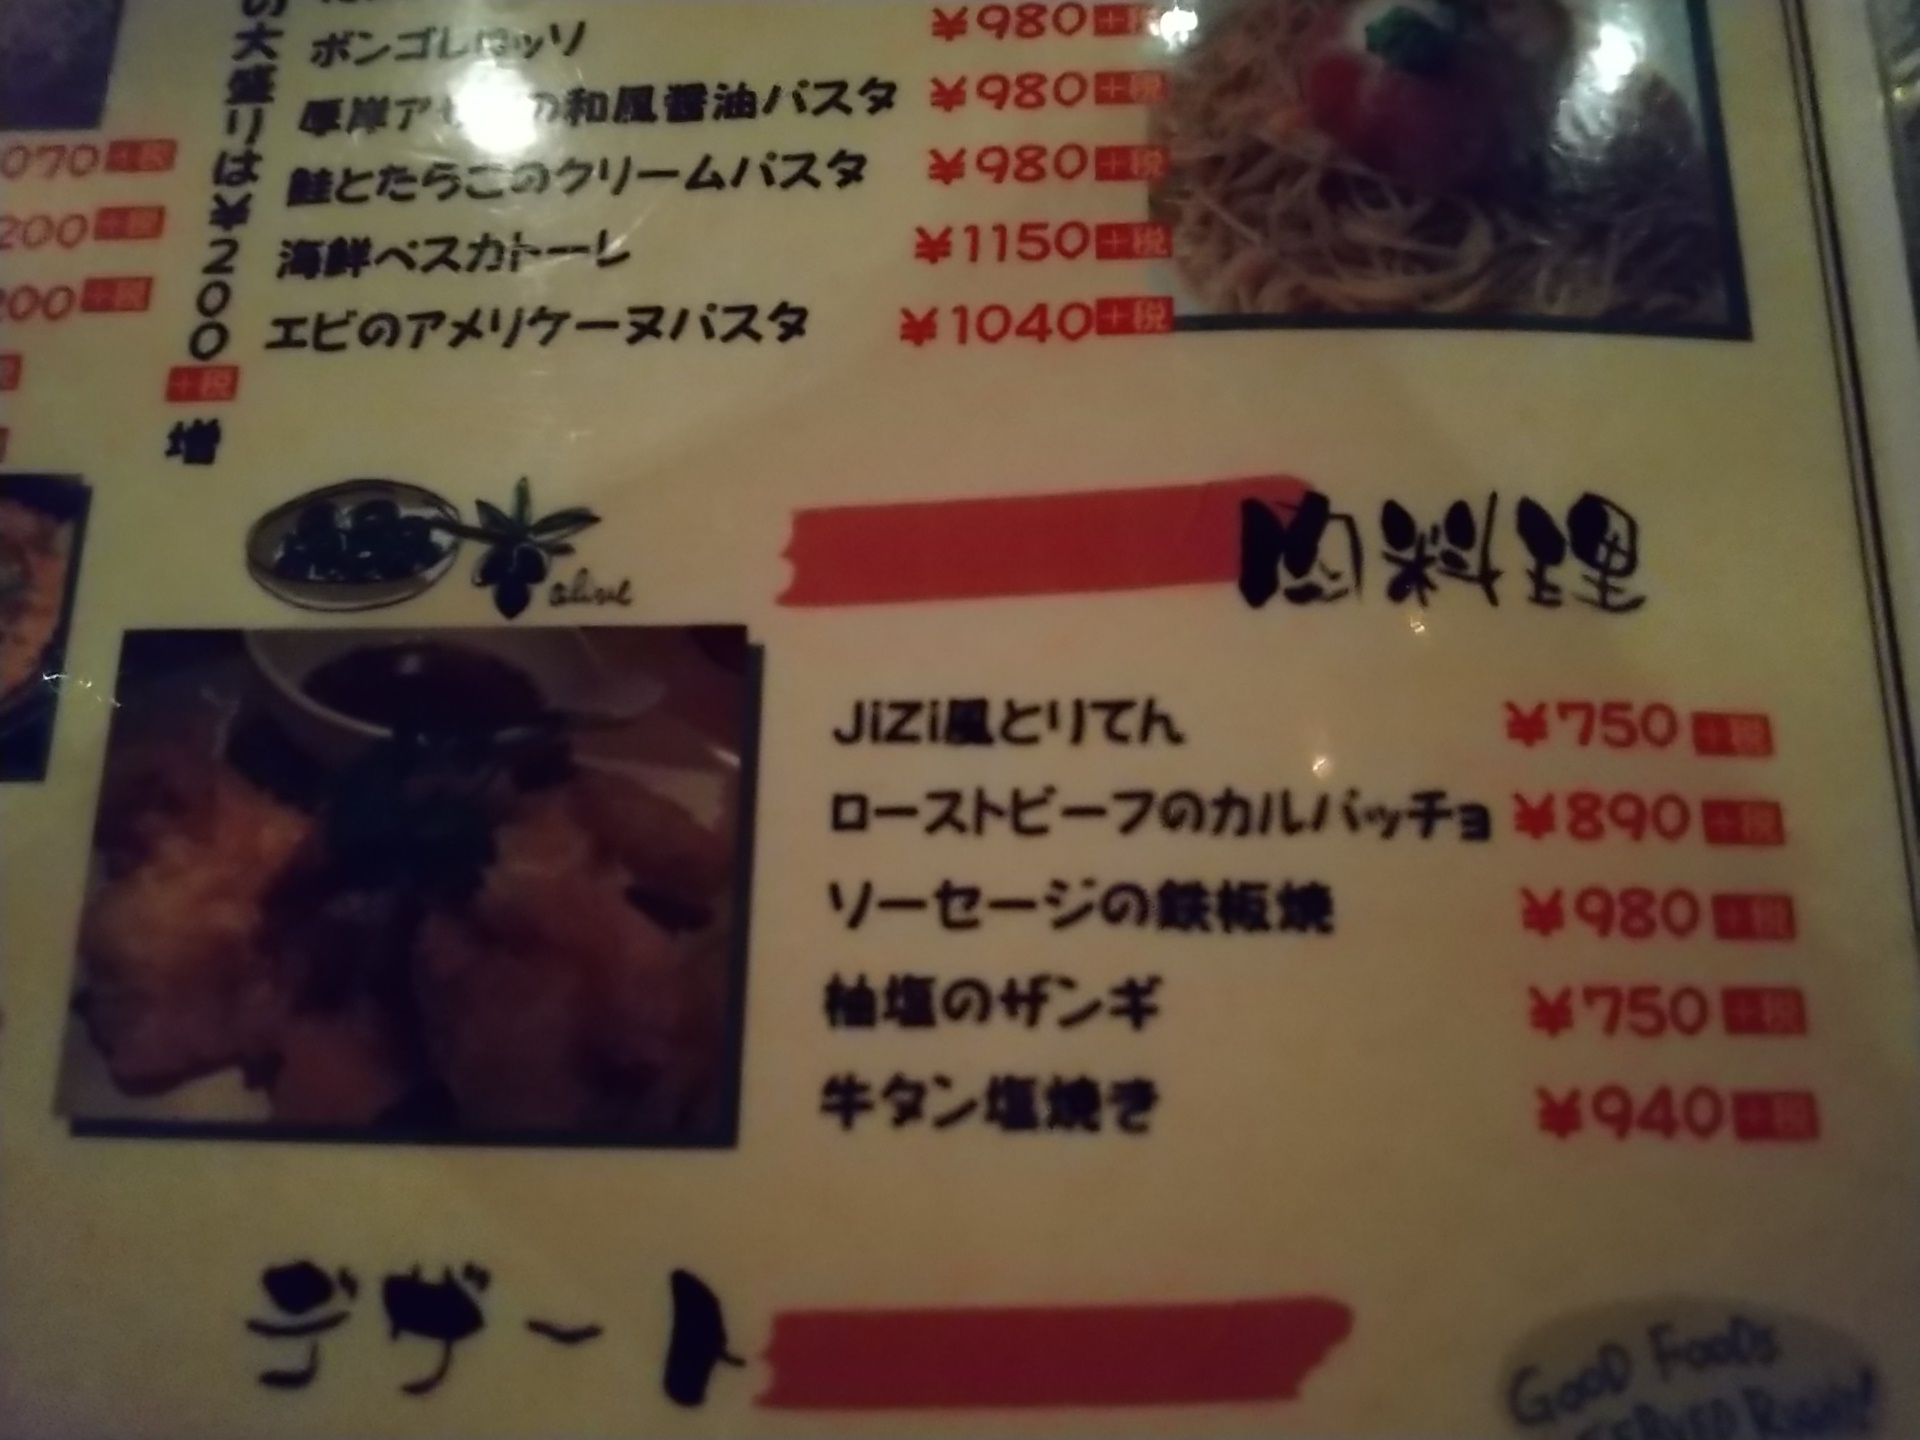 の大盛りは¥200
+税
増
070+税
200+税
200+税
ボンゴレロッソ ¥980+税
厚岸ア の和風醤油パスタ ¥980+税
鮭とたらこのクリームパスタ ¥980+税
海鮮ペスカトーレ ¥1150+税
エビのアメリケーヌパスタ ¥1040+税
olive
肉料理
JiZi風とりてん ¥750+税
ローストビーフのカルパッチョ ¥890+税
ソーセージの鉄板焼 ¥980+税
柚塩のザンギ ¥750+税
牛タン塩焼き ¥940+税
デザート
GOOD FOODS